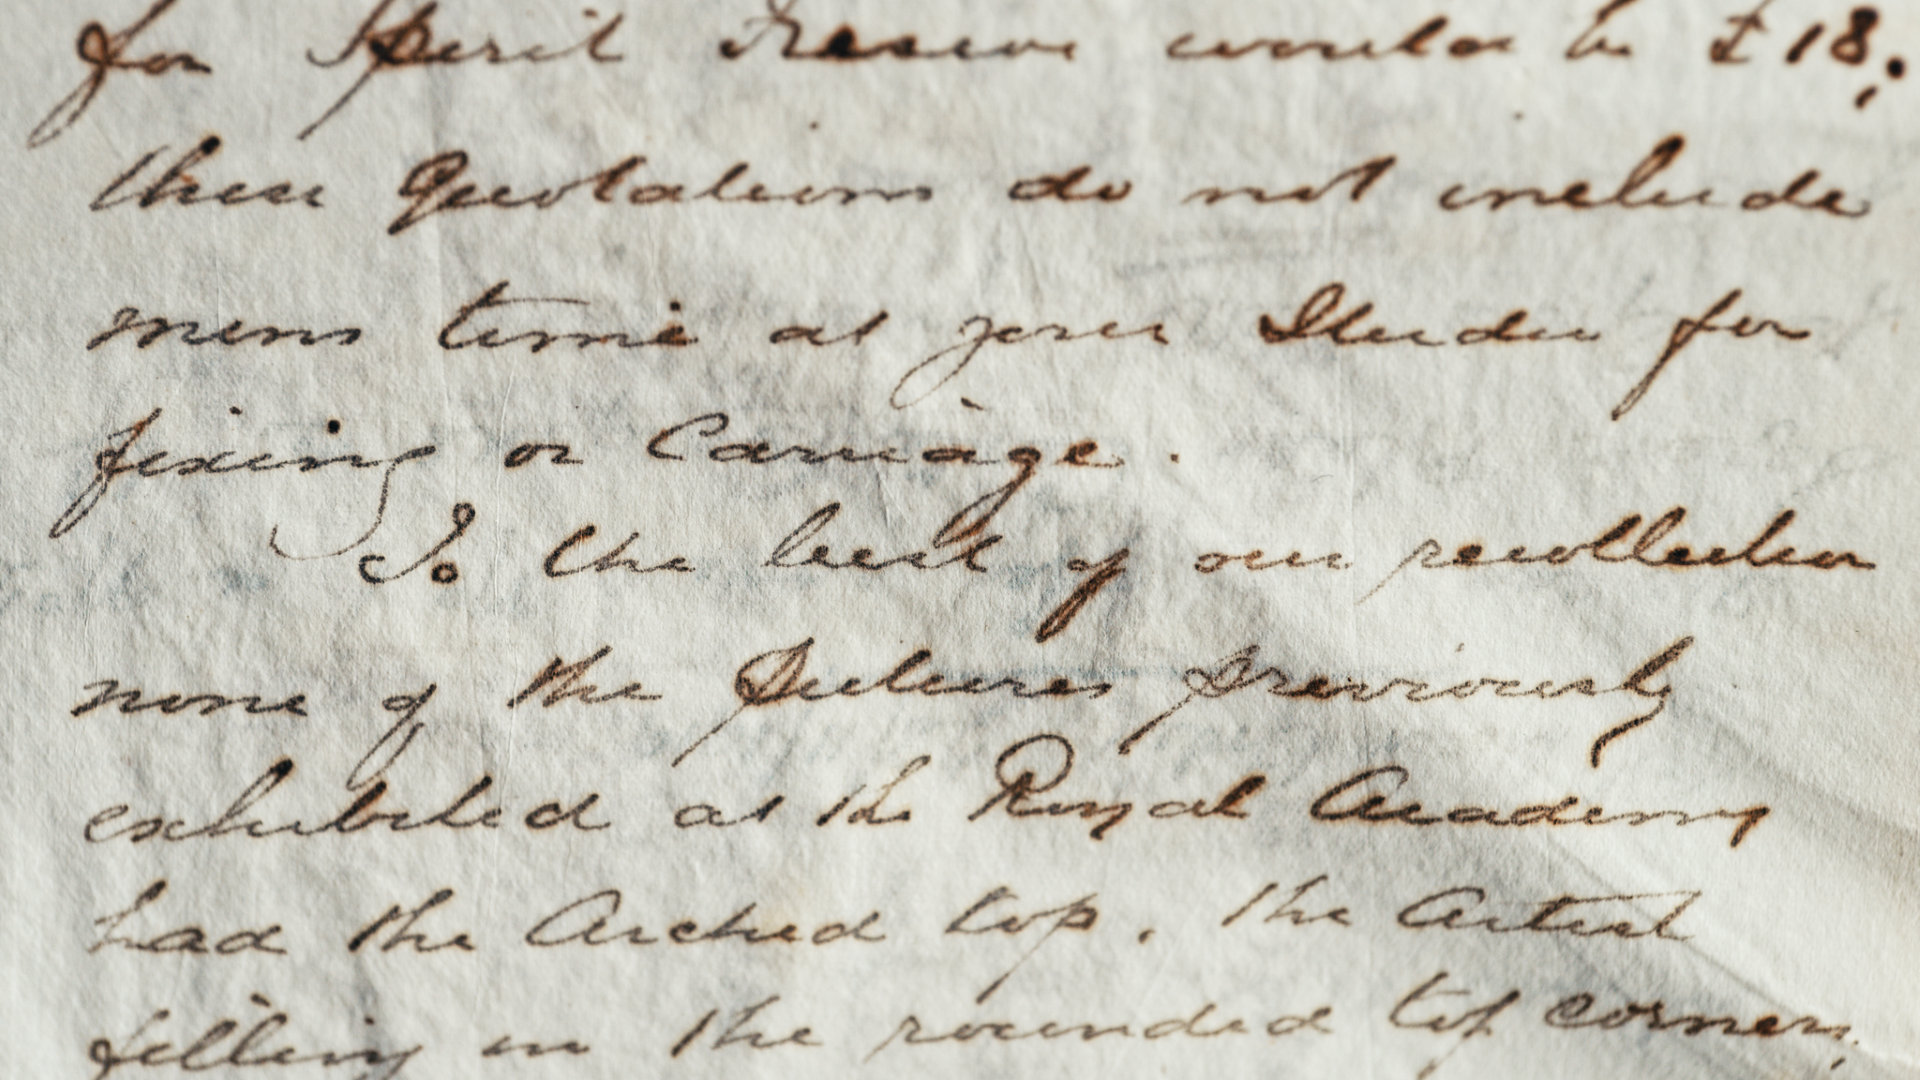 for Spirit Fresco would be £18;
these Quotations do not include
mens time at your Studio for
fixing or Carriage.
To the best of our recollection
none of the pictures previously
exhibited at the Royal Academy
had the Arched top. the Artist
filling in the rounded top corners,